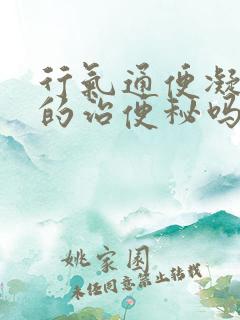 行氣通便凝
的治便秘吗
姚家园
未经同意禁止转载